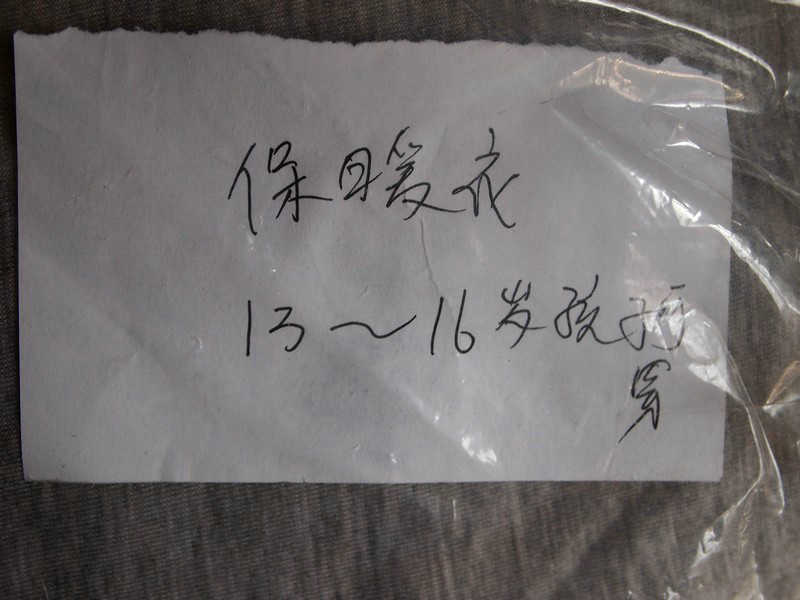 保暖衣
13～16岁孩
穿